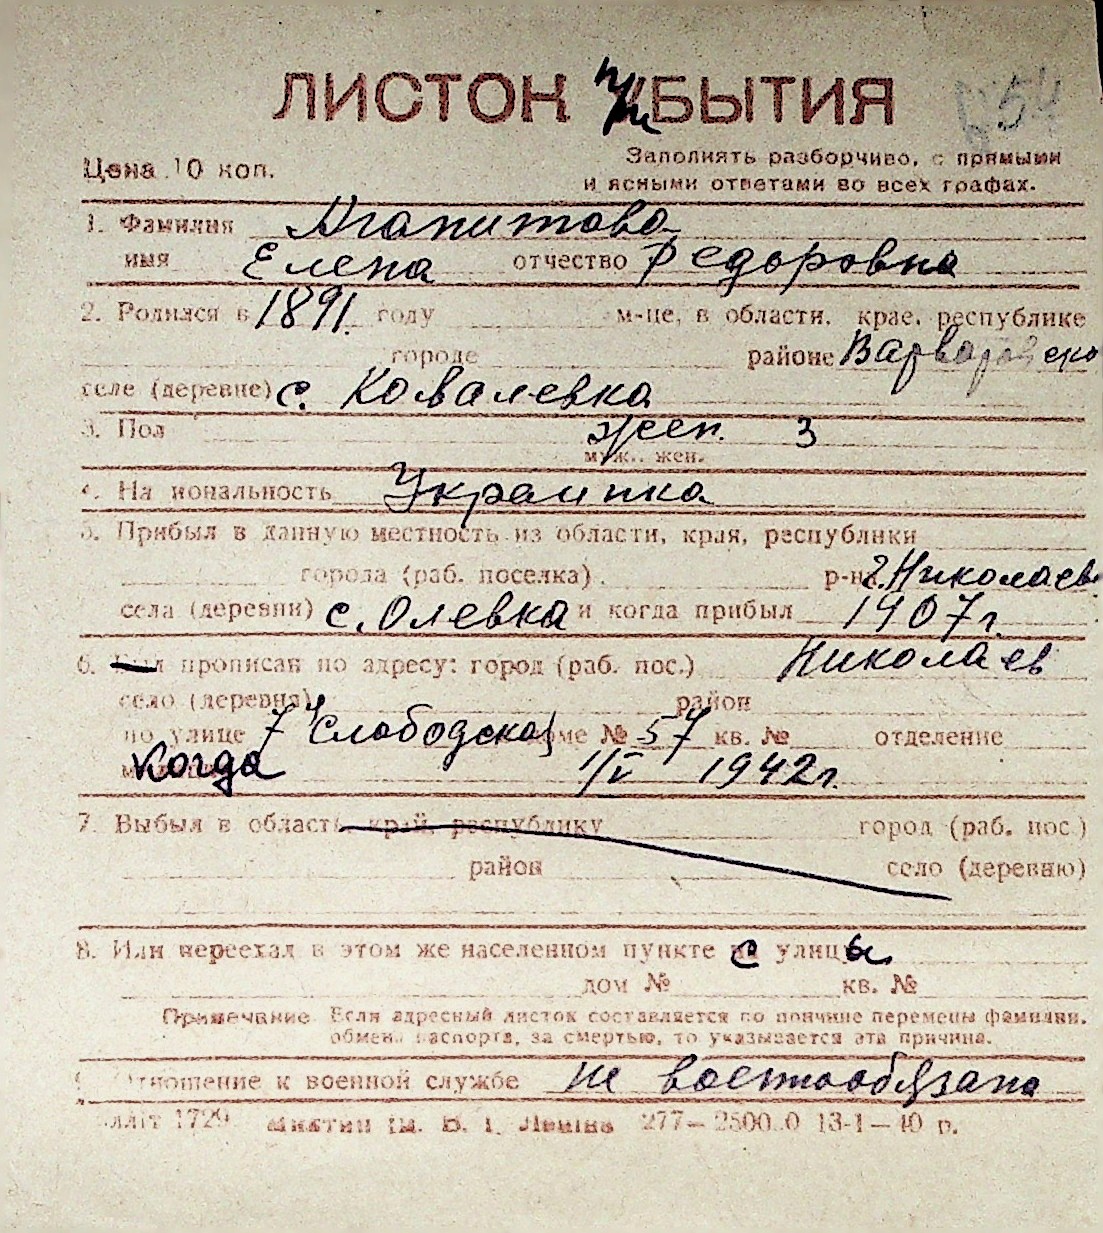 ЛИСТОК ПРИБЫТИЯ
54
Цена 10 коп.
Заполнять разборчиво, с прямыми
и ясными ответами во всех графах.
1. Фамилия Агапитова
имя Елена отчество Федоровна
2. Родился в 1891 г. году м-це, в области, крае, республике
городе районе Варваровско
селе (деревне) с. Ковалевка
3. Пол жен. 3
муж., жен.
4. Национальность Украинка
5. Прибыл в данную местность из области, края, республики
города (раб. поселка) р-на г. Николаев
села (деревни) с. Олевка и когда прибыл 1907 г.
6. Был прописан по адресу: город (раб. пос.) Николаев
село (деревня) район
по улице 7 Слободская доме № 57 кв. № отделение
Когда 1/V 1942 г.
7. Выбыл в область, край, республику город (раб. пос.)
район село (деревню)
8. Или переехал в этом же населенном пункте с улицы
дом № кв. №
Примечание Если адресный листок составляется по причине перемены фамилии,
обмена паспорта, за смертью, то указывается эта причина.
9. Отношение к военной службе не военнообязана
1729 ім. В. І. Леніна 277— 13-1—40 р.